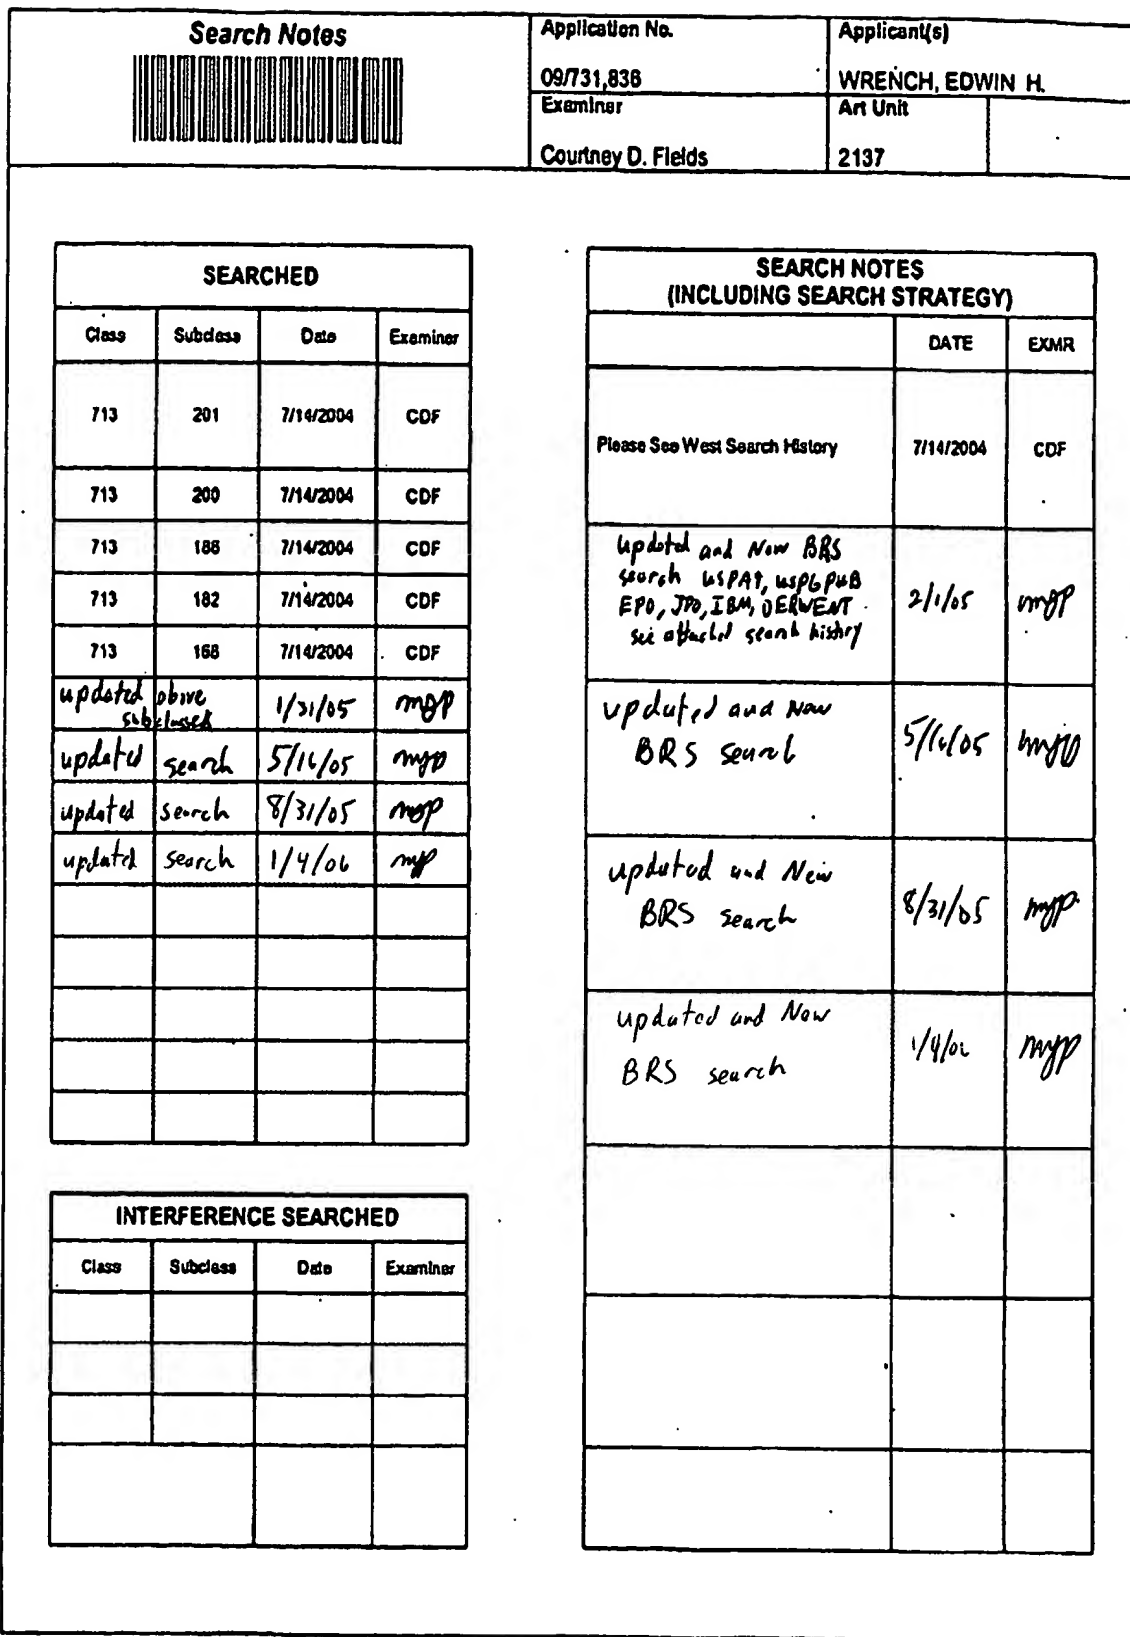 Search Notes
Application No.
Applicant(s)
09/731,836
WRENCH, EDWIN H.
Examiner
Art Unit
Courtney D. Fields
2137
SEARCHED
Class Subclass Date Examiner
713 201 7/14/2004 CDF
713 200 7/14/2004 CDF
713 188 7/14/2004 CDF
713 182 7/14/2004 CDF
713 168 7/14/2004 CDF
updated above 1/31/05
subclasses
updated search 5/16/05
updated search 8/31/05 myp
updated search 1/4/06 myp
INTERFERENCE SEARCHED
Class Subclass Date Examiner
SEARCH NOTES
(INCLUDING SEARCH STRATEGY)
DATE EXMR
Please See West Search History 7/14/2004 CDF
updated and New BRS
search USPAT, USPGPUB
EPO, JPO, IBM, DERWENT 2/1/05
see attached search history
updated and New 5/16/05
BRS search
updated and New
BRS search 8/31/05 myp
updated and New
BRS search 1/4/06 myp